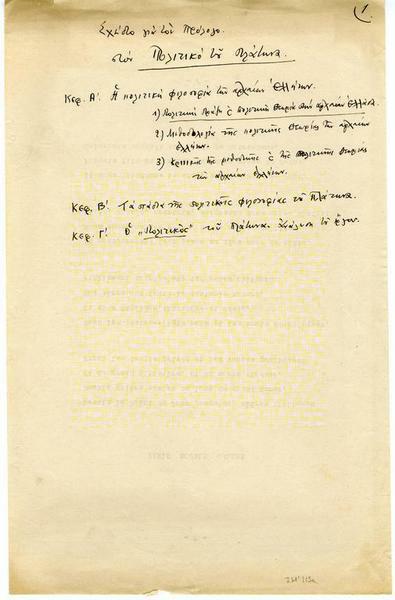 1.
Σχέδιο γιὰ τὸν πρόλογο
στὸν Πολιτικὸ τοῦ Πλάτωνα.
Κεφ. Α΄. Ἡ πολιτικὴ φιλοσοφία τῶν ἀρχαίων Ἑλλήνων.
1) Πολιτικὴ πράξη & πολιτικὴ θεωρία στὴν ἀρχαία Ἑλλάδα.
2) Μεθοδολογία τῆς πολιτικῆς θεωρίας τῶν ἀρχαίων
Ἑλλήνων.
3) τῆς & τῆς πολιτικῆς θεωρίας
τῶν ἀρχαίων ἑλλήνων.
Κεφ. Β΄. Τὰ στάδια τῆς πολιτικῆς φιλοσοφίας τοῦ Πλάτωνα.
Κεφ. Γ΄. Ὁ „Πολιτικὸς" τοῦ Πλάτωνα. Ἀνάλυση τοῦ ἔργου.